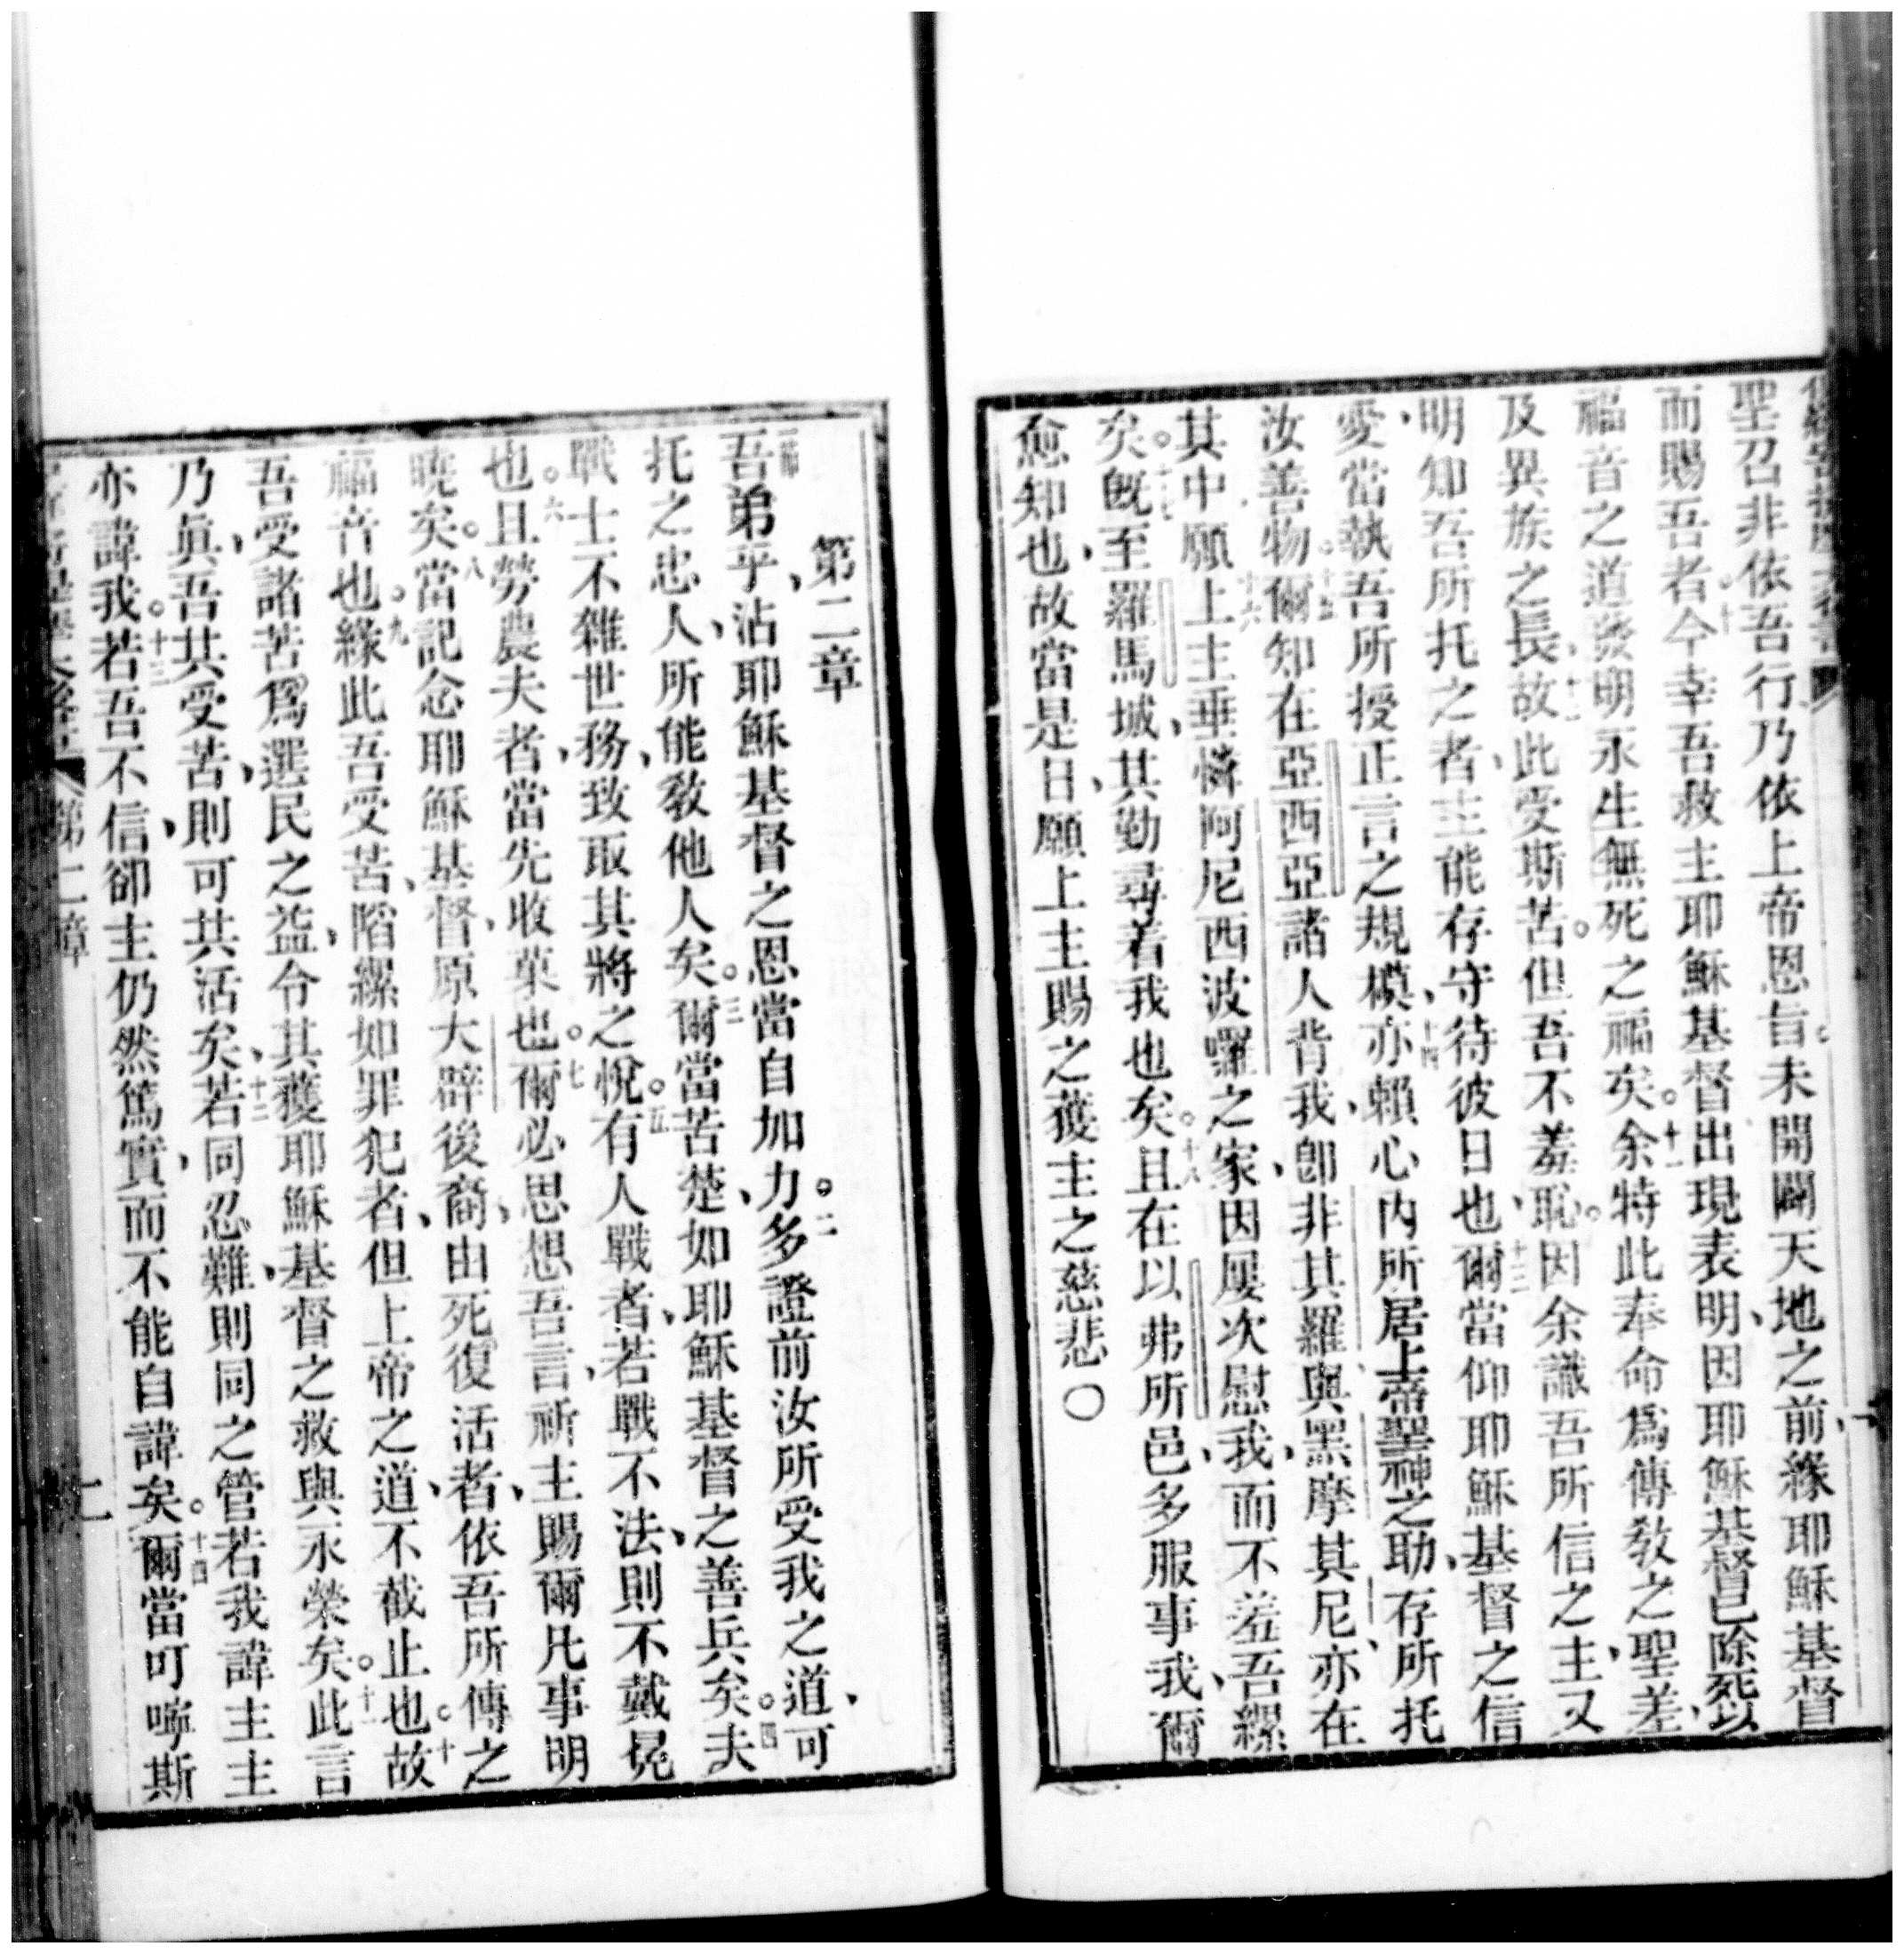 聖召非依吾行乃依上帝恩旨未開闢天地之前緣耶穌基督
而賜吾者。十今幸吾救主耶穌基督出現表明、因耶穌基督已除死以
福音之道發明永生無死之福矣。十一余特此奉命爲傳敎之聖差、
及異族之長、十二故此受斯苦。但吾不羞恥。因余識吾所信之主、又
明知吾所托之者、主能存守待彼日也、十三爾當仰耶穌基督之信
愛、當執吾所授正言之規模、十四亦賴心內所居上帝聖神之助、存所托
汝善物。十五爾知在亞西亞諸人背我、卽非其羅與黑摩其尼、亦在
其中。十六願上主垂憐阿尼西波囉之家、因屢次慰我、而不羞吾縲
矣。十七旣至羅馬城、其勤尋着我也矣。十八且在以弗所邑、多服事我、爾
愈知也、故當是日、願上主賜之獲主之慈悲〇
第二章
一節吾弟乎、沾耶穌基督之恩當自加力。二多證前汝所受我之道、可
托之忠人、所能敎他人矣。三爾當苦楚、如耶穌基督之善兵矣。四夫
戰士不雜世務、致取其將之悅。五有人戰者、若戰不法、則不戴冕
也。六且勞農夫者、當先收菓也。七爾必思想吾言、祈主賜爾凡事明
曉矣。八當記念耶穌基督、原大辟後裔、由死復活者、依吾所傳之
福音也。九緣此吾受苦、陷縲如罪犯者、但上帝之道、不截止也。十故
吾受諸苦、爲選民之益、令其獲耶穌基督之救與永榮矣。十一此言
乃眞、吾共受苦、則可共活矣、十二若同忍難、則同之管若我諱主主
亦諱我。十三若吾不信、卻主仍然篤實、而不能自諱矣。十四爾當叮嚀斯
第二章
二